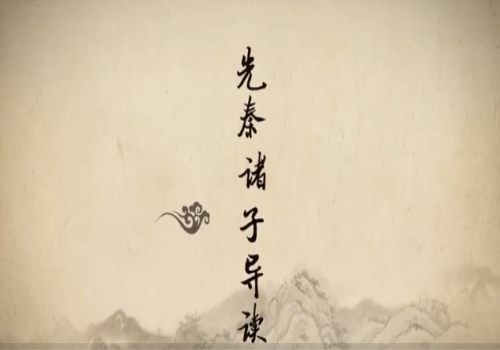 先秦诸子导读